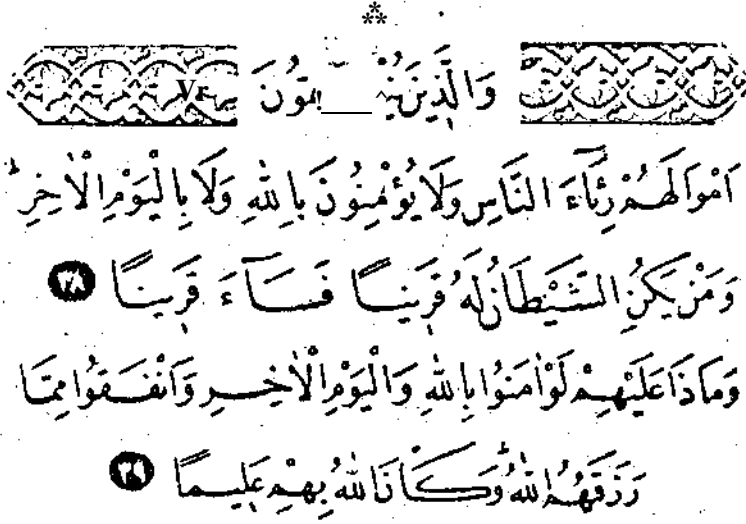 وَالَّذِينَ
اَمْوَالَهُمْ رِئَٓاءَ النَّاسِ وَلَا يُؤْمِنُونَ بِاللّٰهِ وَلَا بِالْيَوْمِ الْاٰخِرِۜ
وَمَنْ يَكُنِ الشَّيْطَانُ لَهُ قَرٖينًا فَسَٓاءَ قَرٖينًا ﴿٣٨﴾
وَمَاذَا عَلَيْهِمْ لَوْ اٰمَنُوا بِاللّٰهِ وَالْيَوْمِ الْاٰخِرِ وَاَنْفَقُوا مِمَّا
رَزَقَهُمُ اللّٰهُۜ وَكَانَ اللّٰهُ بِهِمْ عَلٖيمًا ﴿٣٩﴾